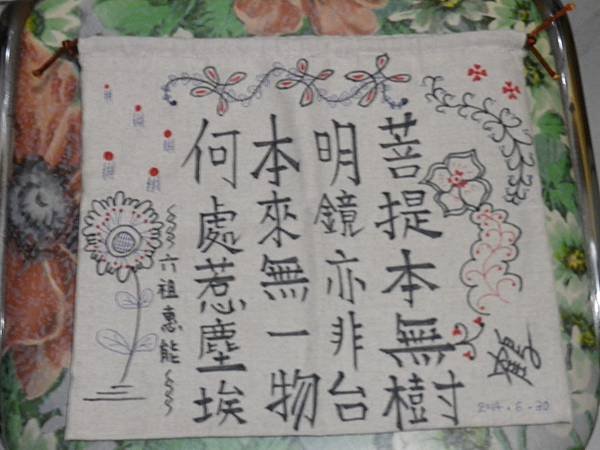 菩提本無樹
明鏡亦非台
本來無一物
何處惹塵埃
六祖惠能